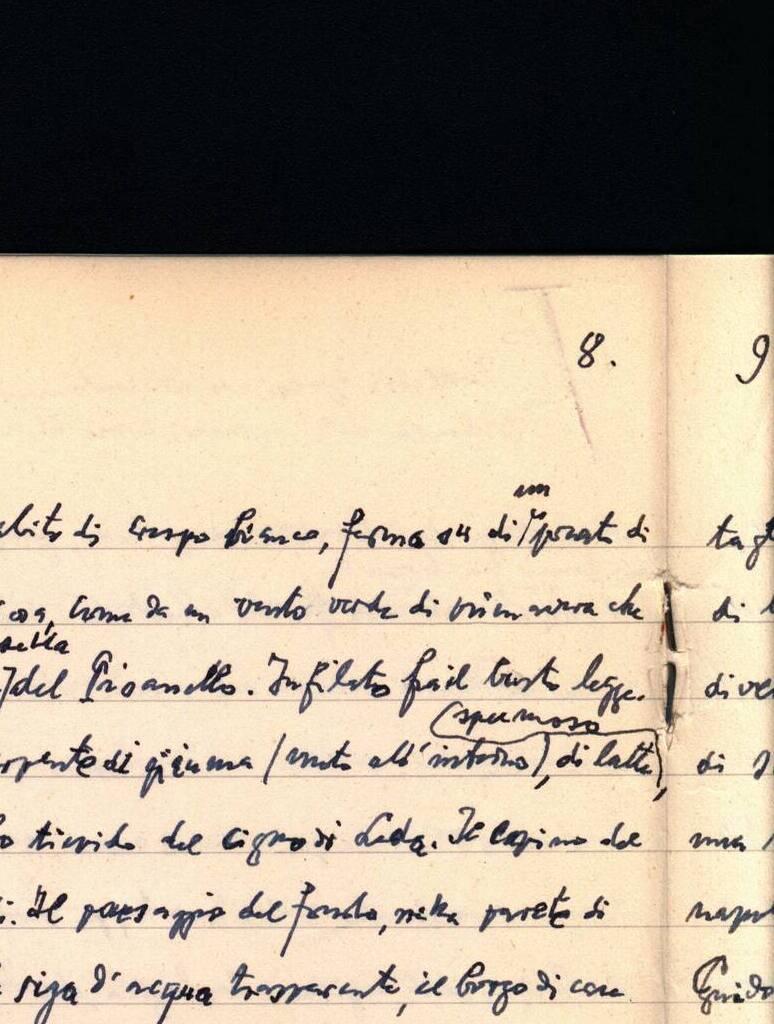 8.
9
un
di crespo bianco, ferma su di prato di
come da un vento verde di primavera che
della
del Pisanello. Infilato fra il busto legge.
(spumoso
di piuma (vuoto all'interno), di latte),
tiepido del cigno di Leda. Il capino del
Il paesaggio del fondo, nella parete di
riga d'acqua trasparente, il borgo di case
di
di
Guido